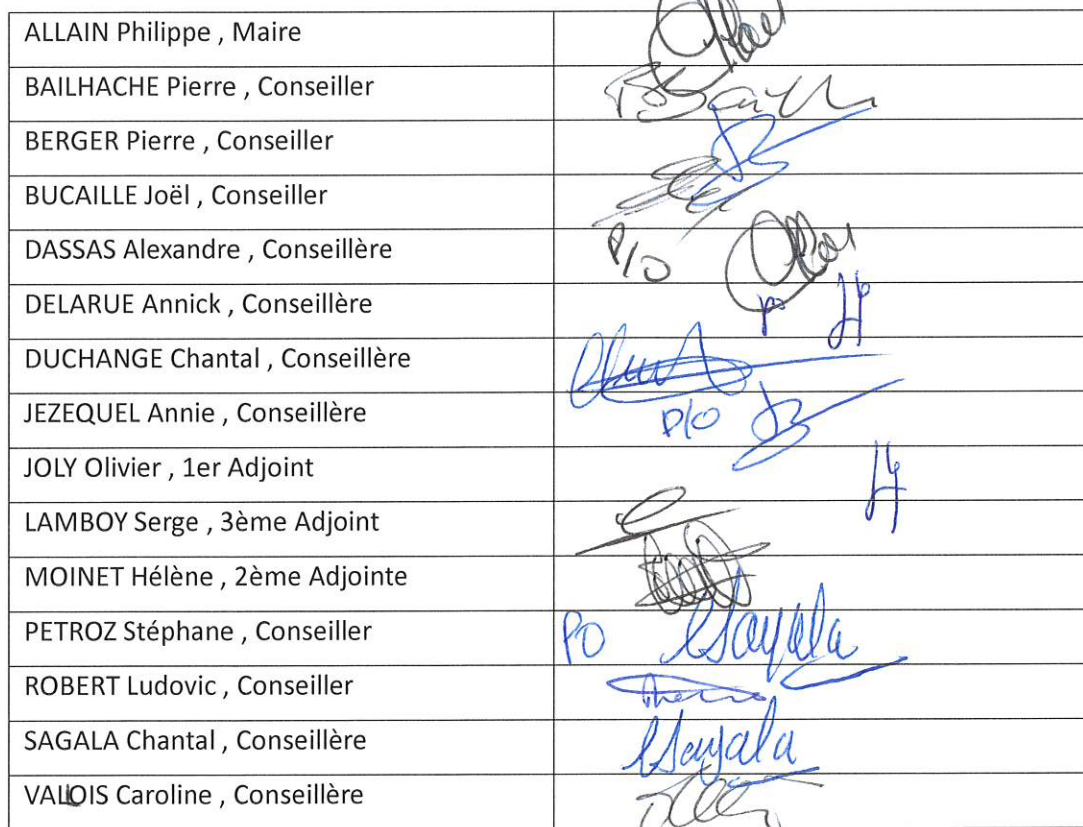 ALLAIN Philippe , Maire
BAILHACHE Pierre , Conseiller
BERGER Pierre , Conseiller
BUCAILLE Joël , Conseiller
DASSAS Alexandre , Conseillère
P/O
DELARUE Annick , Conseillère
po
DUCHANGE Chantal , Conseillère
JEZEQUEL Annie , Conseillère
P/O
JOLY Olivier , 1er Adjoint
LAMBOY Serge , 3ème Adjoint
MOINET Hélène , 2ème Adjointe
PETROZ Stéphane , Conseiller
PO Sagala
ROBERT Ludovic , Conseiller
SAGALA Chantal , Conseillère
Sagala
VALOIS Caroline , Conseillère